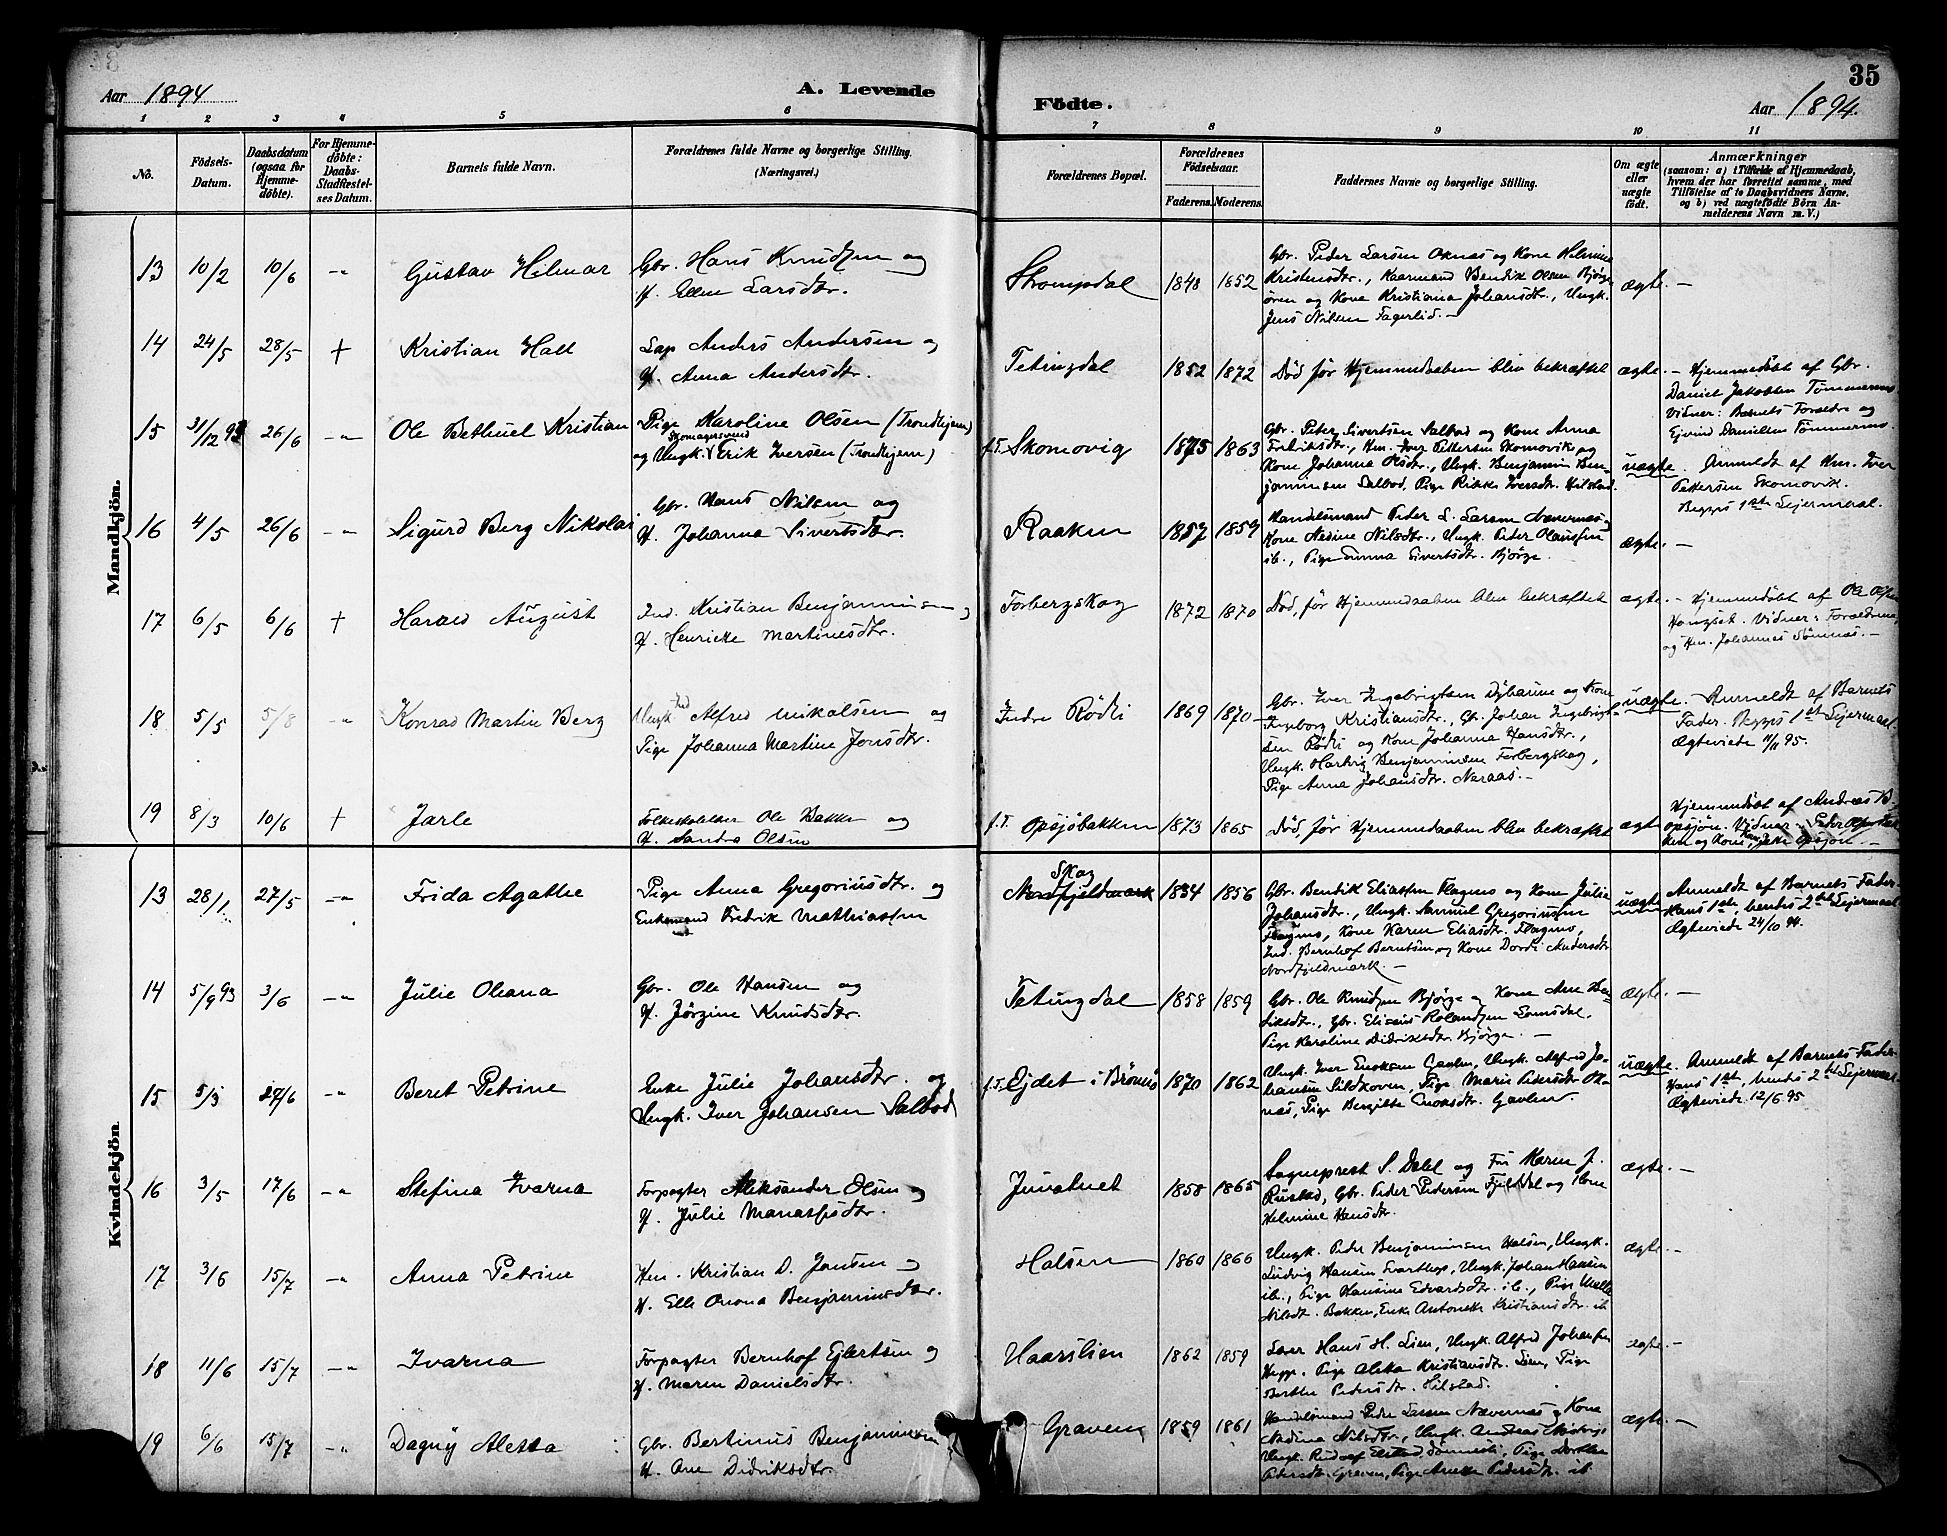 Aar 1894
A. Levende
Födte.
35
Aar 1894.
1 2 3 4 5 6 7 8 9 10 11
No.
Födsels-Datum.
Daabsdatum (ogsaa for Hjemme-döbte).
For Hjemme-döbte: Daabs-Stadfæstel-ses Datum.
Barnets fulde Navn.
Forældrenes fulde Navne og borgerlige Stilling.
(Næringsvei.)
Forældrenes Bopæl.
Forældrenes Födselsaar.
Faderens. Moderens.
Faddernes Navne og borgerlige Stilling.
Om ægte eller uægte födt.
Anmærkninger
(saasom: a) i Tilfælde af Hjemmedaab,
hvem der har forrettet samme, med
Tilföielse af to Daabsvidners Navne,
og b) ved uægtefödte Börn An-
melderens Navn m. V.)
Mandkjön.
13 10/2 10/6 -"- Gustav Hilmar
Gbr. Hans Knudsen og
H. Ellen Larsdtr.
Strompdal 1848 1852
Gbr. Peder Larsen Oknes og Kone Helmine
Kristensdtr., Kaarmand Bendik Olsen Bjørge
ören og Kone Kristiana Johansdtr., Ungk.
Jens Nilsen Fagerlid. -
ægte. -
14 24/5 28/5 +
Kristian Hall
Lap Anders Andersen og
H. Anna Andersdtr.
Tetingdal 1852 1872
Död för Hjemmedaaben blev bekræftet
ægte. -
Hjemmedöbt af Gbr.
Daniel Jakobsen Tömmermo
Vidner: Barnets Forældre og
Ejvind Danielsen Tömmermo.
15 31/12 93 26/6 -"- Ole Bethuel Kristian
Pige Karoline Olsen (Trondhjem)
og Ungk. Skomagersvend Erik Iversen (Trondhjem)
f.T. Skomovig 1875 1863
Gbr. Peter Sivertsen Salbod og Kone Anna
Fredriksdtr., Hm. Iver Pettersen Skomovik og
Kone Johanna Olsdtr., Ungk. Benjamin Ben-
jaminsen Salbod, Pige Rikke Iversdtr. Hilstad.
uægte.
Anmeldt af Hm. Iver
Pettersen Skomovik.
Begges 1ste Lejermaal.
16 4/5 26/6 -"- Sigurd Berg Nikolai
Gbr. Hans Nilsen og
H. Johanna Sivertsdtr.
Raaken 1857 1859
Handelsmand Peder L. Larsen Nævernes og
Kone Nedine Nilsdtr., Ungk. Peder Olaussen
ib., Pige Emma Sivertsdtr. Bjørge.
ægte. -
17 6/5 6/6 + Harald August
Ind. Kristian Benjaminsen og
H. Henrikke Martinusdtr.
Forbergskog 1872 1870
Död, för Hjemmedaaben blev bekræftet
ægte. -
Hjemmedöbt af Ole Olsen
Hongset. Vidner: Forældrene
og Hm. Johannes Sömnes. -
18 5/5 5/8 -"- Konrad Martin Berg
Ungk. Ind. Alfred Nikolsen og
Pige Johanna Martine Jensdtr.
Indre Rödli 1869 1870
Gbr. Iver Ingebrigtsen Dyhaune og Kone
Ingeborg Kristiansdtr., Gb. Johan Ingebrigt-
sen Rödli og Kone Johanna Hansdtr.,
Ungk. Hartvig Benjaminsen Forbergskog,
Pige Anna Johansdtr. Naraas. -
uægte.
Anmeldt af Barnets
Fader. Begges 1ste Lejermaal.
Ægteviede 11/11 95.
19 8/3 10/6 + Jarle
Folkeskolelærer Ole Bakken og
H. Sandra Olsen
f.T. Opsjöbakken 1873 1865
Död, för Hjemmedaaben blev bekræftet
ægte
Hjemmedöbt af Andreas B.
Opsjön. Vidner: Peter
og Kone, Opsjön. -
Kvindekjön
13 28/1 27/5 -"- Frida Agathe
Pige Anna Gregoriusdtr. og
Enkemand Fredrik Mathiassen
Skog
Nordfjeldmark 1834 1856
Gbr. Bendik Eliassen Flagmo og Kone Julie
Johansdtr., Ungk. Samuel Gregoriussen
Flagmo, Kone Karen Eliasdtr. Flagmo,
Ind. Bernhof Berntsen og Kone Dordi Andersdtr
Nordfjeldmark. -
uægte
Anmeldt af Barnets Fader.
Hans 1ste, hendes 2det Lejermaal
Ægteviede 24/10 94.
14 5/9 93 3/6 -"- Julie Oliana
Gbr. Ole Hansen og
H. Jörgine Knudsdtr.
Tetingdal 1858 1859
Gbr. Ole Knudsen Bjørge og Kone Ane Ben-
diksdtr., Gbr. Eliseus Rolandsen Lomsdal,
Pige Karoline Didriksdtr. Bjørge. -
ægte. -
15 5/3 24/6 -"- Beret Petrine
Enke Julie Johansdtr. og
Ungk. Iver Johansen Salbod
f.T. Ejdet i Brönnö 1870 1862
Ungk. Iver Eriksen Gavlen, Ungk. Alfred Jo-
hansen Sildkoven, Pige Marie Pedersdtr. Ok-
nes, Pige Bergitte Enoksdtr. Gavlen.
uægte.
Anmeldt af Barnets Fader.
Hans 1ste, hendes 2det Lejermaal.
Ægteviede 12/6 95
16 3/5 17/6 -"- Stefina Ivarna
Forpagter Aleksander Olsen og
H. Julie Manassesdtr.
Juvatnet 1858 1865
Sogneprest S. Dahl og Fru Karen J.
Rustad, Gbr. Peder Pedersen Fjeldal og Kone
Helmine Hansdtr.
ægte. -
17 3/6 15/7 -"- Anna Petrine
Hm. Kristian D. Jensen og
H. Elle Onona Benjaminsdtr.
Halsen 1860 1866
Ungk. Peder Benjaminsen Halsen, Ungk.
Ludvig Hansen Svarthop, Ungk. Johan Hansen
ib., Pige Hansine Edvardsdtr. ib., Pige
Nilsdt. Bakken, Enke Antonette Kristiansdtr. ib
ægte. -
18 11/6 15/7 -"- Ivarna
Forpagter Bernhof Ejlertsen og
H. Maren Danielsdtr.
Haarslien 1862 1859
Hans H. Lien, Ungk. Alfred Johansen
Hegge, Pige Aletta Kristiansdtr. Lien, Pige
Berthe Pedersdtr. Hilstad.
ægte. -
19 6/6 15/7 -"- Dagny Aletta
Gbr. Bertinus Benjaminsen
H. Ane Didriksdtr.
Graven 1859 1861
Handelsmand Peder Larsen Nævernes og Kone
Nedina Nilsdtr., Ungk. Andreas
Ungk. Rudolf Elstad Sömnesli, Pige Dorthea
Pedersdt. Graven, Pige Anette Pedersdt. ib
ægte. -